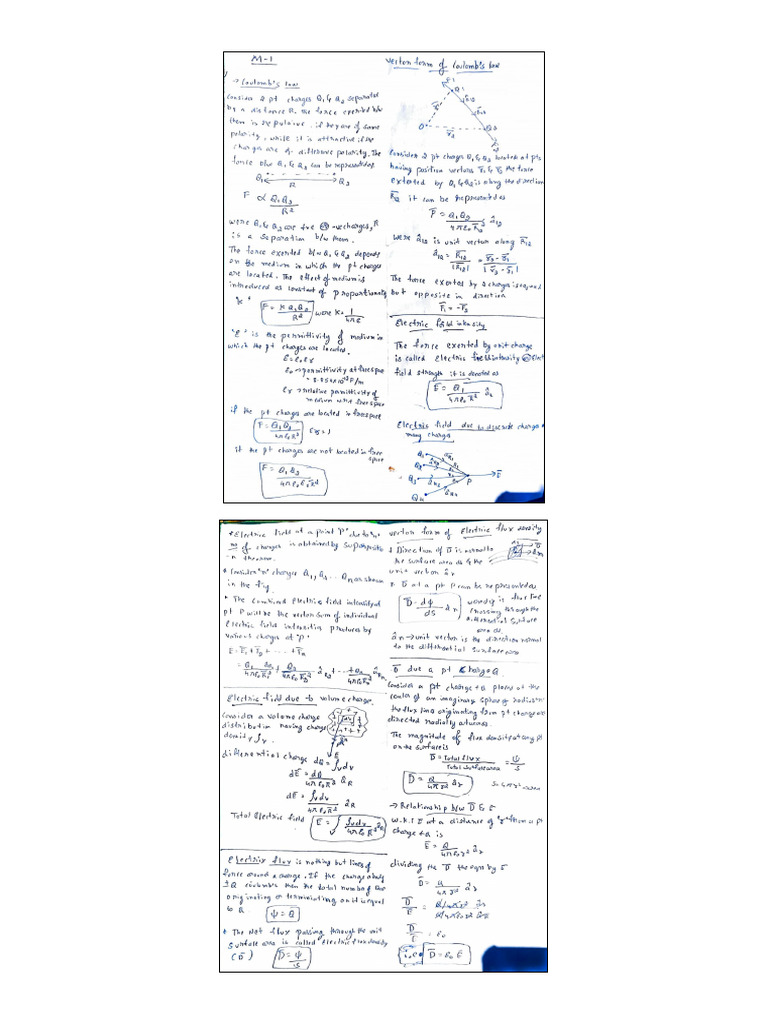 M-1
→ Coulomb's law
Consider 2 pt charges Q1 & Q2 separated
by a distance R. The force exerted b/w
them is repulsive, if they are of same
polarity, while it is attractive if the
charges are of difference polarity. The
force b/w Q1 & Q2 can be represented as
Q1 Q2
R
F ∝ Q1Q2/R²
were Q1 & Q2 are +ve or -ve charges, R
is a separation b/w them.
The force exerted b/w Q1 & Q2 depends
on the medium in which the pt charges
are located. The effect of medium is
introduced as constant of proportionality
"K" F = K Q1Q2/R² were K = 1/4πε
"ε" is the permittivity of medium in
which the pt charges are located.
ε = ε0 εr
ε0 → permittivity at free space
= 8.854×10⁻¹² F/m
εr → relative permittivity of
medium w.r.t free space
if the pt charges are located in free space
F = Q1Q2/4πε0R² εr = 1
if the pt charges are not located in free
space
F = Q1Q2/4πε0εrR²
Vector form of Coulomb's law
F1
Q1
R12
O Q2
r2
F2
Consider 2 pt charges Q1 & Q2 located at pts
having position vectors r1 & r2 the force
exterted by Q1 & Q2 is along the direction
R12 it can be represented as
F = Q1Q2/4πε0R12² â12
were â12 is unit vector along R12
â12 = R12/|R12| = r2 - r1/|r2 - r1|
The force exerted by 2 charges is equal
but opposite in direction
F1 = -F2
Electric field intensity
The force exerted by unit charge
is called electric field intensity or elect
field strength it is denoted as
E = Q1/4πε0R² âR
Electric field due to discrete charges
many charges
Q1
Q2
Q3 P E
Qn
* Electric field at a point "P" due to "n"
no of charges is obtained by superpositio
-n theorem.
* Consider "n" charges Q1, Q2 ... Qn as shown
in the fig.
* The combined electric field intensity at
pt P will be the vector sum of individual
electric field intensities produces by
various charges at "P"
E = E1 + E2 + ... + En
Electric field due to volume charge.
Consider a volume charge
distribution having charge
density ρv.
differential charge dQ = ρv dv
dE = dQ/4πε0R² âR
dE = ρv dv/4πε0R² âR
Total electric field E = ∫ ρv dv/4πε0R² âR
Electric flux is nothing but lines of
force around a charge. If the charge a body
±Q coulombs then the total number of flux
originating or terminating on it is equal
to Q. ψ = Q
* The Net flux passing through the unit
surface area is called electric flux density
(D) D = ψ/S
vector form of Electric flux density
* Direction of D is normal to
the surface area ds & the
unit vector ân
* D at a pt P can be represented as
D = dψ/ds ân
were dψ is flux line
crossing through the
differential surface
area ds.
ân → unit vector is the direction normal
to the differential surface area
D due a pt charge Q
Consider a pt charge +Q placed at the
centre of an imaginary sphere of radius "r"
the flux lines originating from pt charge are
directed radially outwards.
The magnitude of flux density at any pt
on the surface is
D = Total flux/Total surface area = ψ/S
D = Q/4πr² âr
→ Relationship b/w D & E
W.K.T E at a distance of "r" from a pt
charge +Q is
E = Q/4πε0r² âr
dividing the D the eqn by E
D = Q/4πr² âr
D/E = ε0
i.e D = ε0 E